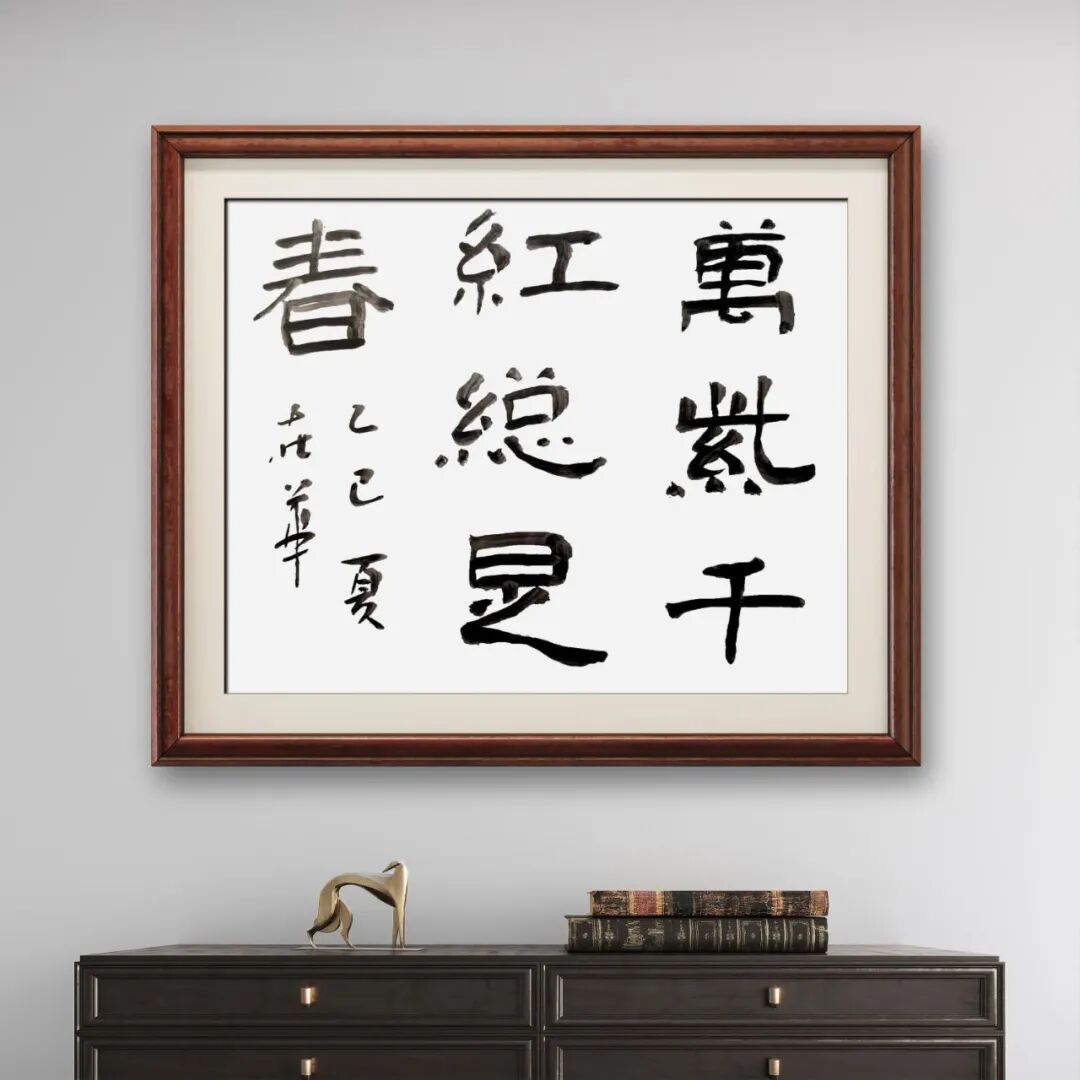 萬紫千
紅總是
春
乙巳夏
華